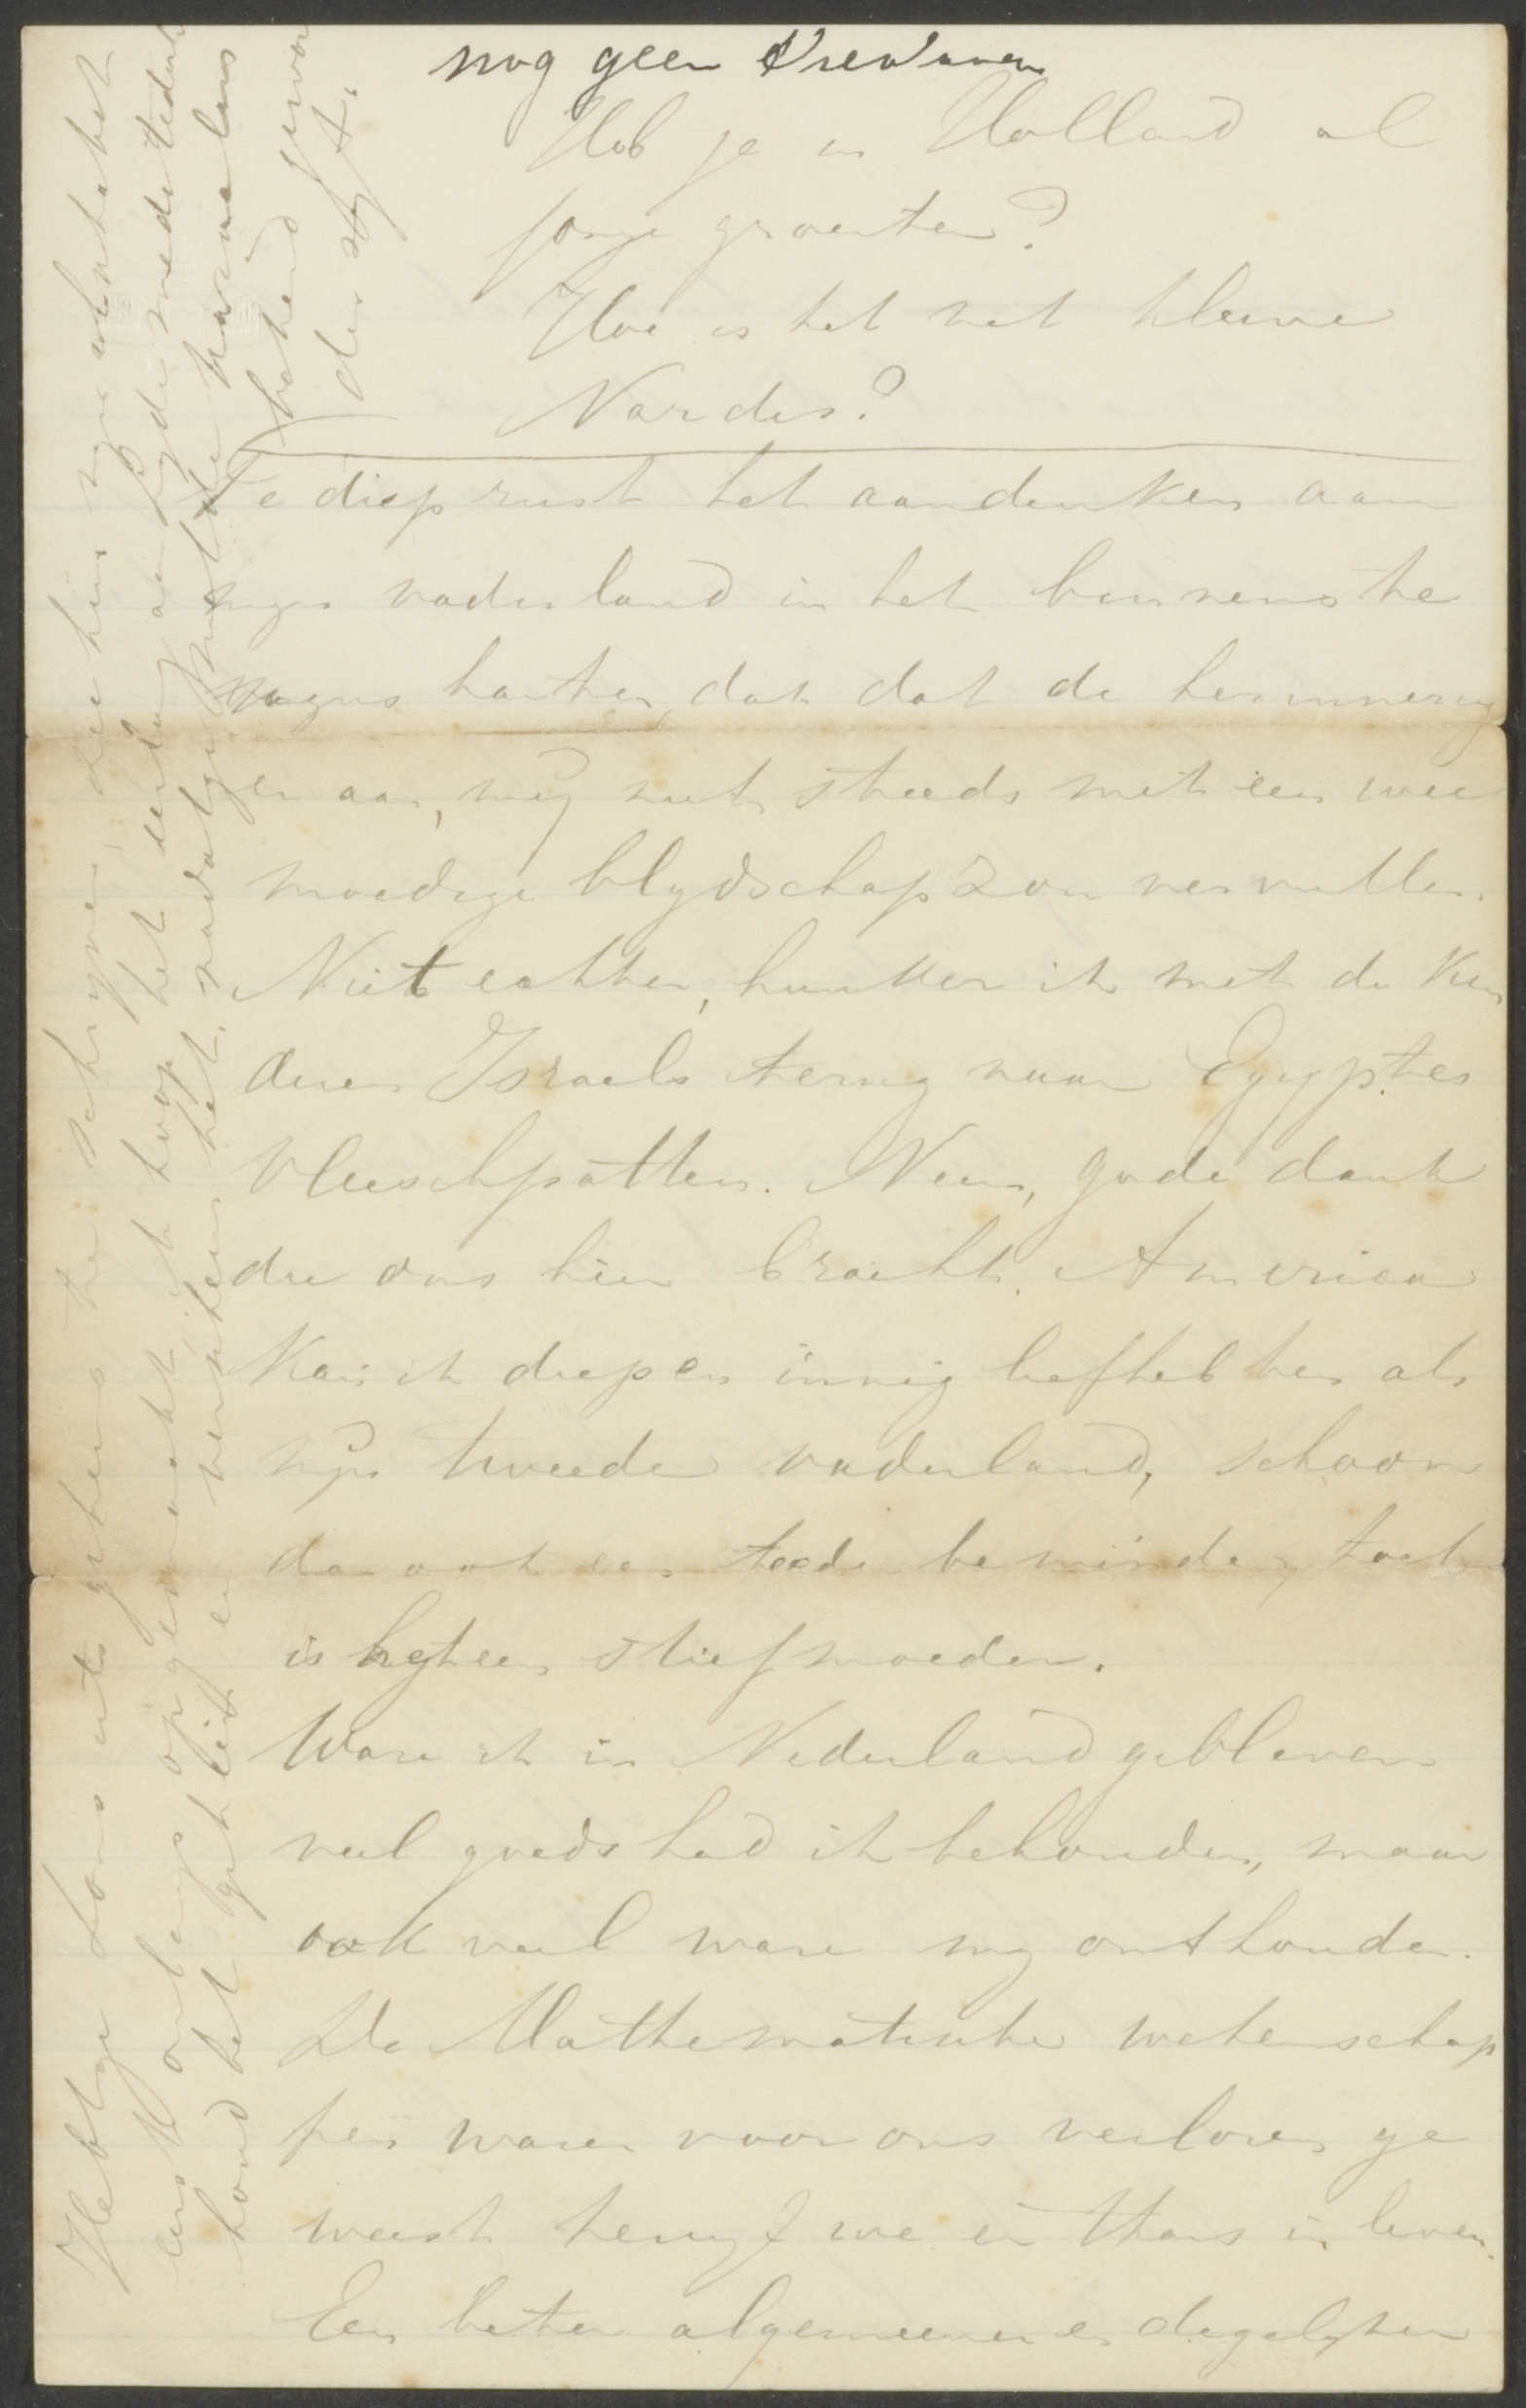 nog geen
Heb je in Holland al
jonge groenten?
Hoe is het met kleine
Nardus?
Te diep rust het aandenken aan
mijn vaderland in het binnenste
mijns harten, dat dat de herinnering
er aan, mij niet steeds met een wee
moedige blijdschap zou vervullen.
Niet echter, hunker ik met de kin
deren Israels terug naar Egyptes
vleeschpotten. Neen, gode dank
die ons hier bracht. America
kan ik diep en innig liefhebben als
mijn tweede vaderland, schoon
dan ook een teeder beminde, toch
is het een stiefmoeder.
Ware ik in Nederland gebleven
veel goeds had ik behouden, maar
ook veel ware mij onthouden.
De Mathematische wetenschap
pen waren voor ons verloren ge
weest terwijl we er thans in leven.
Een beter algemeener en degelijker
Hebt ge soms iets geheims te schrijven, doe hier mijn
eerst onlangs opgemaakt, ik hoop het eerlang aan
houd het geheel en verzekers het, nadat ge met de
bekend
der